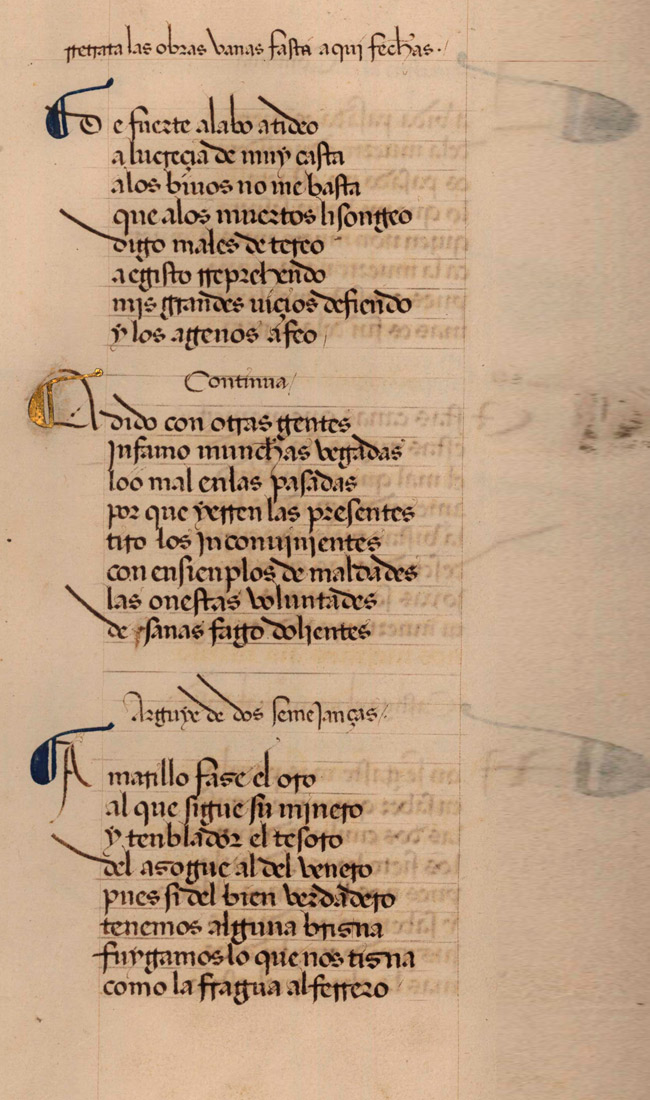 rretrata las obras vanas fasta aqui fechas.
De fuerte alabo a tideo
a lucreçia de muy casta
a los biuos no me basta
que a los muertos lisongeo
digo males de tereo
a egisto rreprehendo
mis grandes uiçios defiendo
y los agenos afeo
Continua
Adido con otras gentes
Infamo munchas vegadas
loo mal en las pasadas
por que yerren las presentes
tiro los Inconuinientes
con ensienplos de maldades
las onestas voluntades
de sanas fago dolientes
Arguye de dos semeJanças
Amarillo fase el oro
al que sigue su minero
y tenblador el tesoro
del asogue al del venero
pues si del bien verdadero
tenemos alguna brisna
fuygamos lo que nos tisna
como la fragua al ferrero